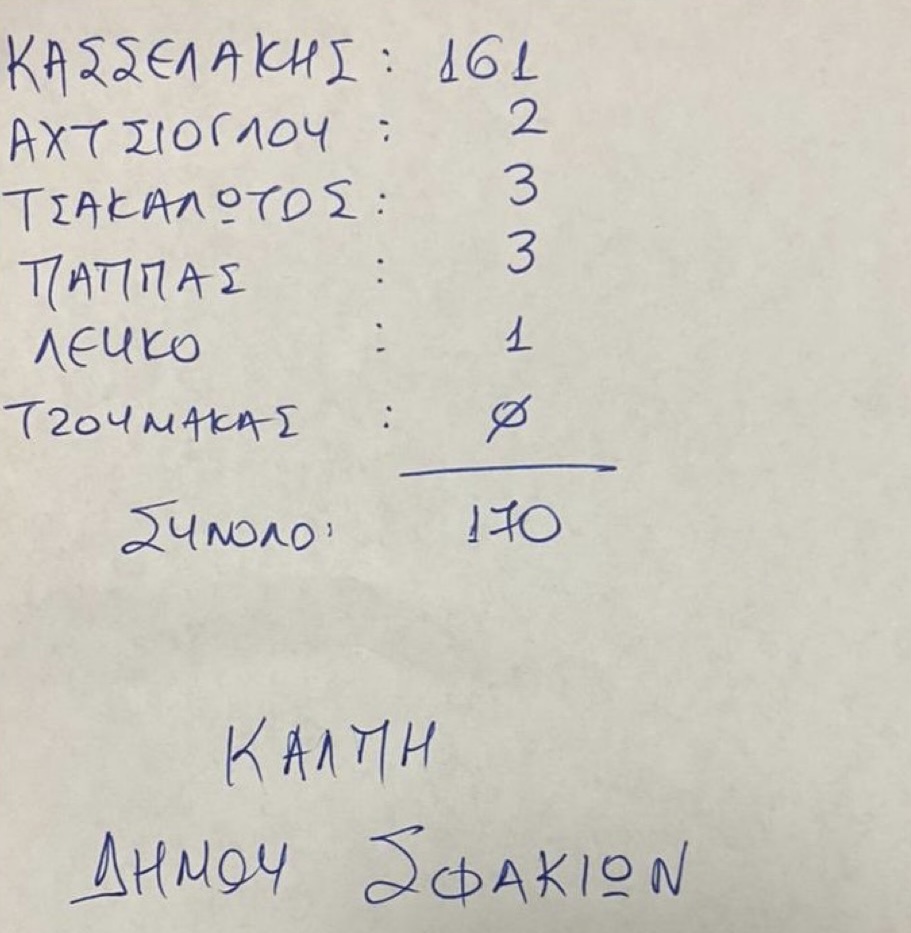 ΚΑΣΣΕΛΑΚΗΣ: 161
ΑΧΤΣΙΟΓΛΟΥ : 2
ΤΣΑΚΑΛΩΤΟΣ: 3
ΠΑΠΠΑΣ : 3
ΛΕΥΚΟ : 1
ΤΖΟΥΜΑΚΑΣ : 0
ΣΥΝΟΛΟ: 170
ΚΑΛΠΗ
ΔΗΜΟΥ ΣΦΑΚΙΩΝ